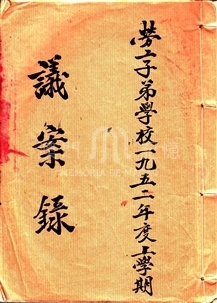 勞工子弟學校一九五二年度上學期
議案錄
MEMÓRIA DE MACAU